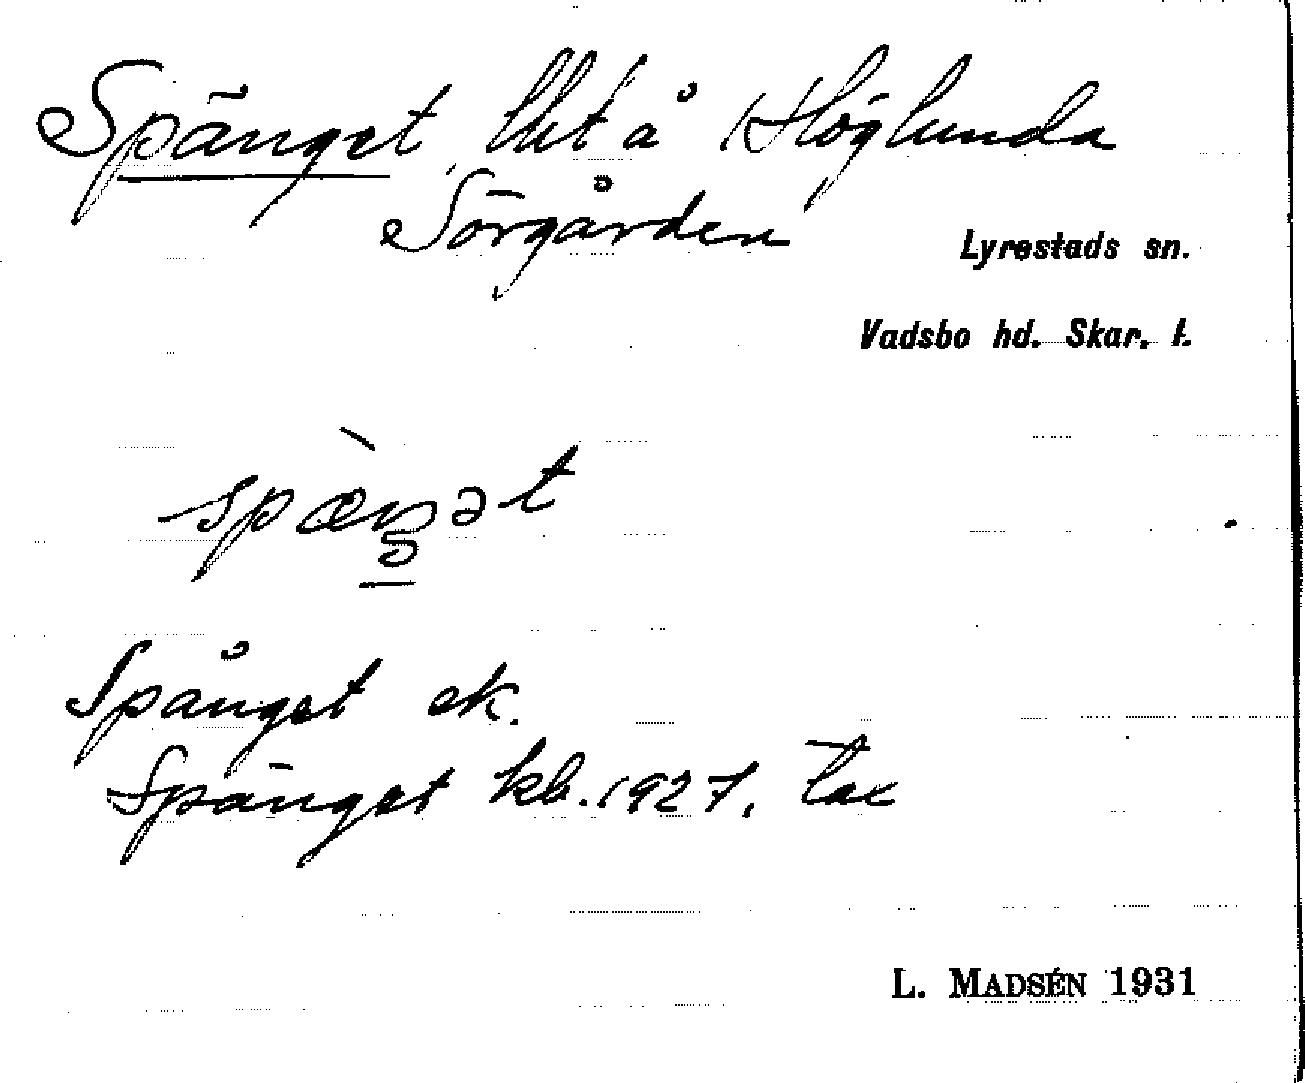 Spänget, lht å Höglunda
Sörgården
Lyrestads sn.
Vadsbo hd. Skar. l.
spæ̀ŋət
Spånget ek.
Spänget kb. 1927, Tax
L. MADSÉN 1931